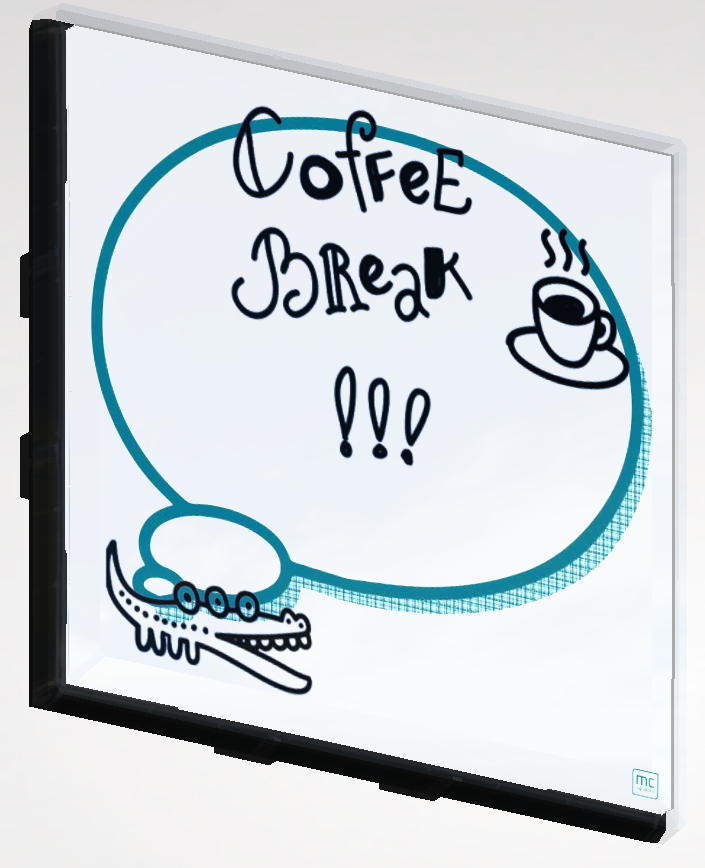 Coffee
Break
!!!
mc